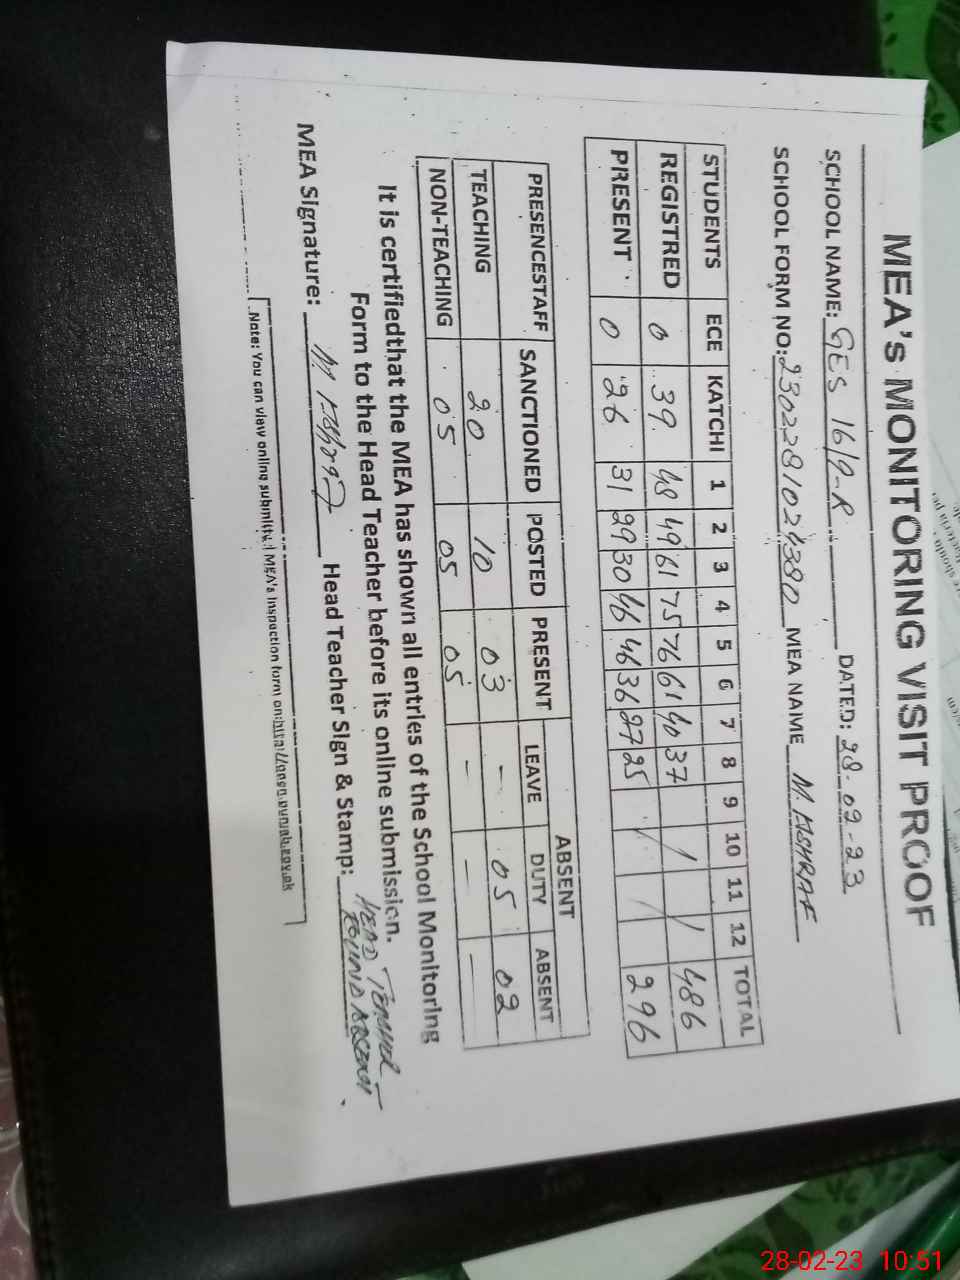 MEA's MONITORING VISIT PROOF
SCHOOL NAME: GES 16/9-R DATED: 28-02-23
SCHOOL FORM NO: MEA NAME M. ASHRAF
STUDENTS ECE KATCHI 1 2 3 4 5 6 7 8 9 10 11 12 TOTAL
REGISTRED 0 39 48 49 61 75 76 61 40 37 486
PRESENT 0 26 31 29 30 46 46 36 27 25 296
PRESENCESTAFF SANCTIONED POSTED PRESENT ABSENT
LEAVE DUTY ABSENT
TEACHING 20 10 03 - 05 02
NON-TEACHING 05 05 05 - - -
It is certifiedthat the MEA has shown all entries of the School Monitoring
Form to the Head Teacher before its online submission.
MEA Signature: M Ashraf Head Teacher Sign & Stamp: HEAD TEACHER
FOUND ABSENT.
Note: You can view online submitted MEA's inspection form on:
28-02-23 10:51